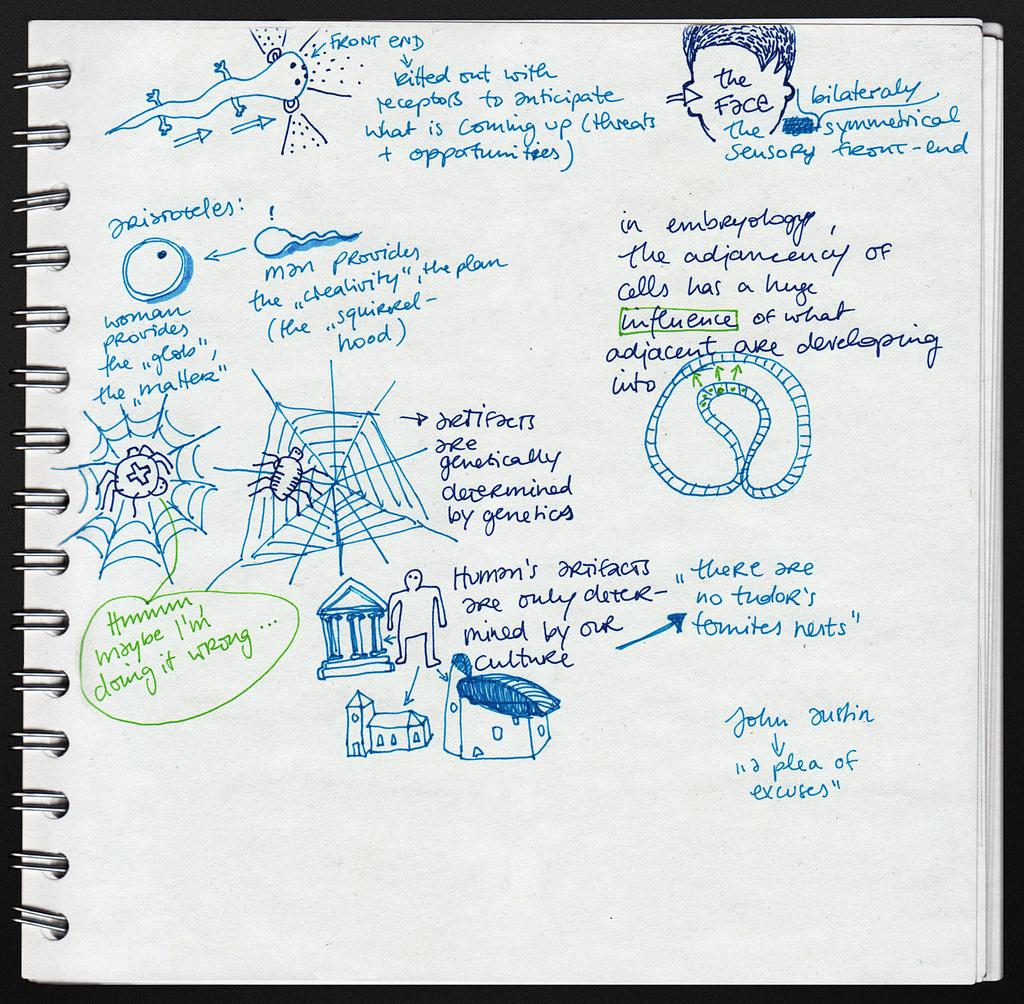 FRONT END
kitted out with
receptors to anticipate
what is coming up (threats
+ opportunities)
the
Face
bilateraly
the symmetrical
sensory front-end
aristoteles:
!
man provides
the „creativity", the plan
(the „squirrel-
hood)
woman
provides
the „glob",
the „matter"
in embryology,
the adjancency of
cells has a huge
influence of what
adjacent are developing
into
→ artifacts
are
genetically
determined
by genetics
Hmmm,
maybe I'm
doing it wrong...
Human's artifacts
are only deter-
mined by our
culture
„there are
no tudor's
tomites nests"
John austin
„a plea of
excuses"